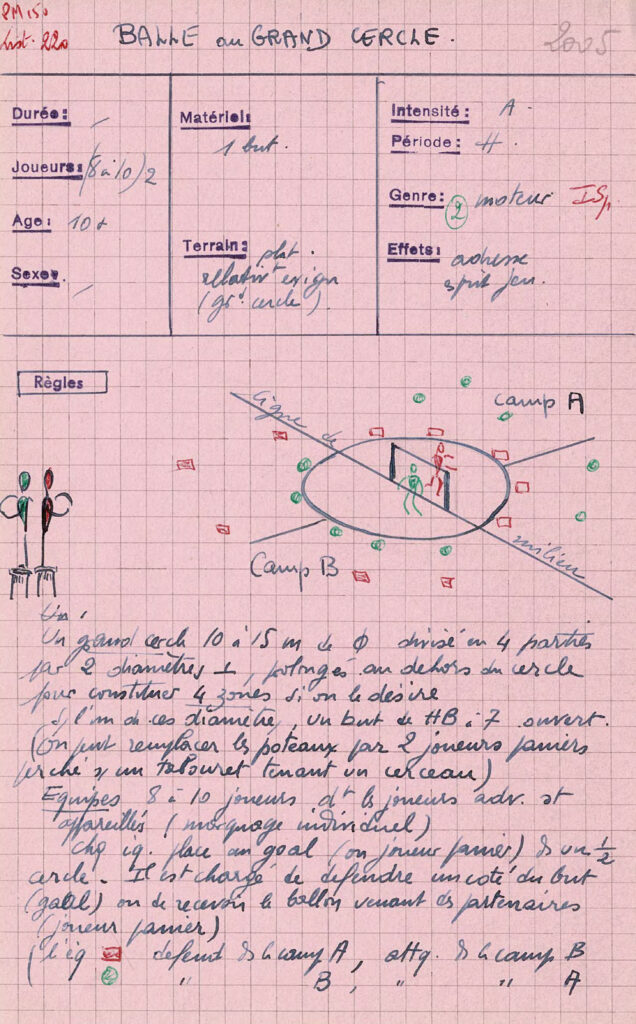 PM 150
hist. 220
BALLE au GRAND CERCLE.
2005
Durée: -
Joueurs: (8 à 10) 2
Age: 10 +
Sexe: -
Matériel:
1 but.
Terrain: plat.
relativt exigu
(gd cercle).
Intensité: A.
Période: H.
Genre: 2 moteur ISp
Effets: adresse
esprit jeu.
Règles
ligne de milieu
camp A
Camp B
Un grand cercle 10 à 15 m de φ divisé en 4 parties
par 2 diamètres ⊥, prolongés au dehors du cercle
pour constituer 4 zones si on le désire
S/ l'un de ces diamètre, un but de HB à 7 ouvert.
(On peut remplacer les poteaux par 2 joueurs paniers
perché s/ un tabouret tenant un cerceau)
Equipes 8 à 10 joueurs dt les joueurs adv. st
appareillés (marquage individuel)
chq éq. place un goal (ou joueur panier) ds un 1/2
cercle. Il est chargé de défendre un coté du but
(goal) ou de recevoir le ballon venant des partenaires
(joueur panier)
(l'éq défend ds le camp A, attq. ds le camp B
" B, " " A